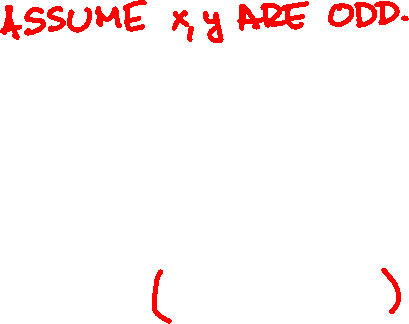 ASSUME x, y ARE ODD.
( )